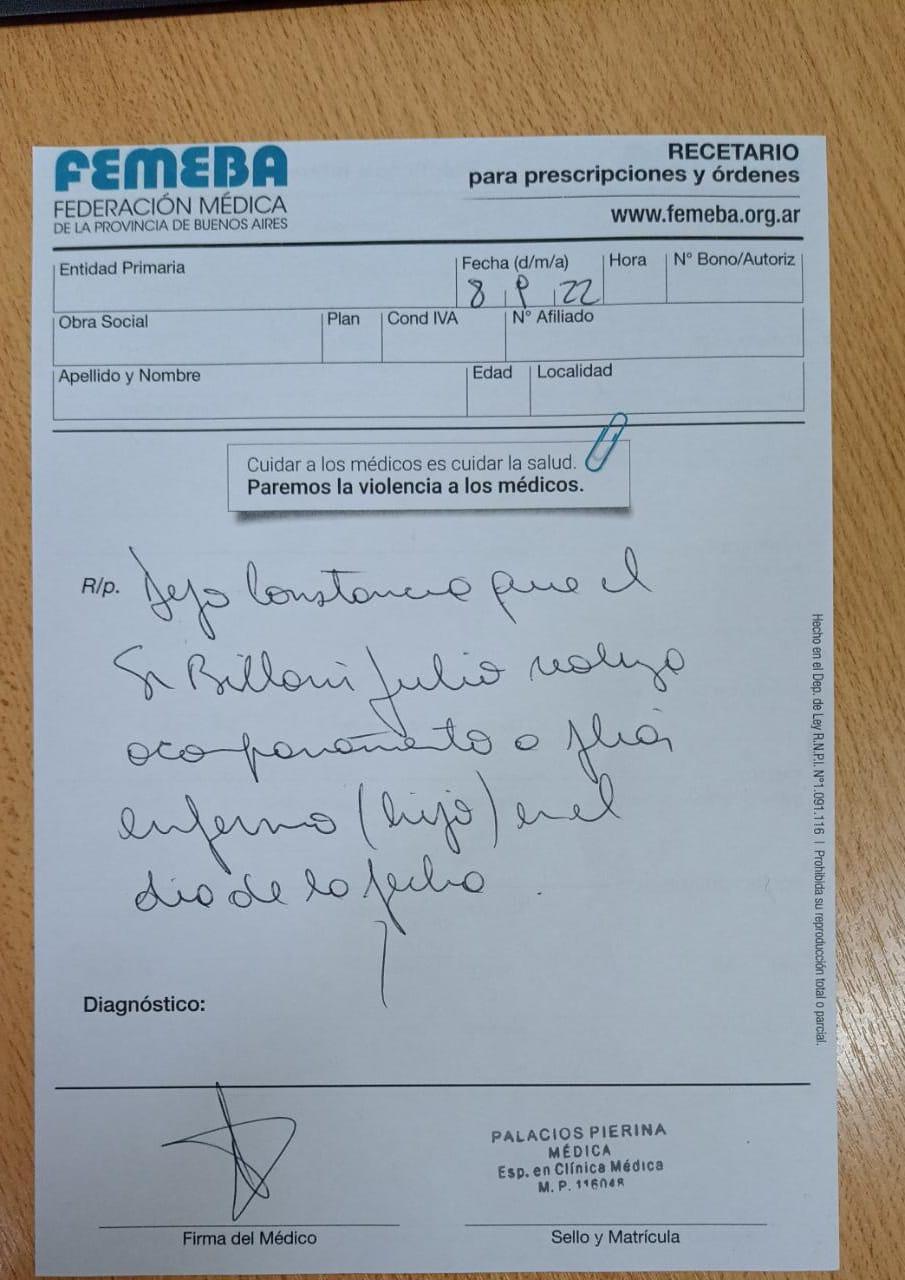 FEMEBA
FEDERACIÓN MÉDICA
DE LA PROVINCIA DE BUENOS AIRES
RECETARIO
para prescripciones y órdenes
www.femeba.org.ar
Entidad Primaria
Fecha (d/m/a)
Hora
N° Bono/Autoriz
8 22
Obra Social
Plan
Cond IVA
N° Afiliado
Apellido y Nombre
Edad
Localidad
Cuidar a los médicos es cuidar la salud.
Paremos la violencia a los médicos.
R/p. Dejo constancia que el
Sr Billoni Julio realizo
acompañamiento a
enfermo (hijo) en el
dia de la fecha
Diagnóstico:
Hecho en el Dep. de Ley R.N.P.I. N°1.091.116 | Prohibida su reproducción total o parcial.
PALACIOS PIERINA
MÉDICA
Esp. en Clínica Médica
M. P. 116048
Firma del Médico
Sello y Matrícula